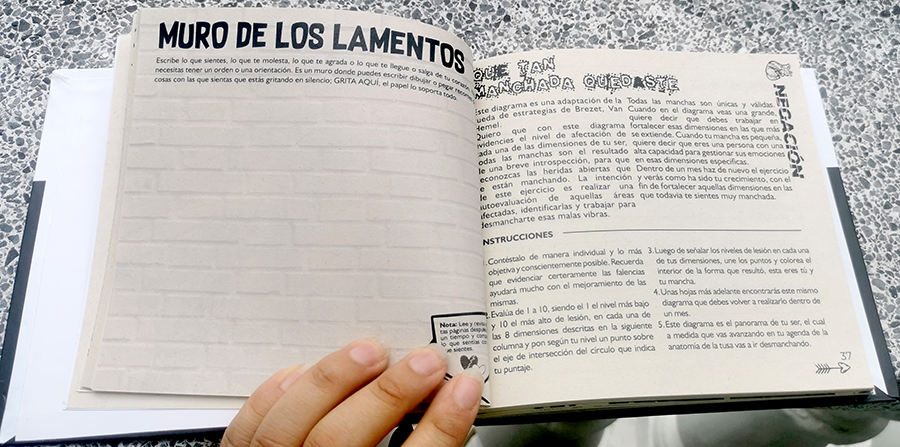 MURO DE LOS LAMENTOS
Escribe lo que sientes, lo que te molesta, lo que te agrada o lo que te llegue o salga de tu corazón,
necesitas tener un orden o una orientación. Es un muro donde puedes escribir dibujar o pegar
cosas con las que sientas que estás gritando en silencio; GRITA AQUÍ, el papel lo soporta todo.
Nota: Lee y
tas páginas después
un tiempo y
lo que sentías
sientes.
QUE TAN
MANCHADA QUEDASTE
Este diagrama es una adaptación de la
rueda de estrategias de Brezet, Van
Hemel.
Quiero que con este diagrama
evidencies el nivel de afectación de
cada una de las dimensiones de tu ser,
todas las manchas son el resultado
de una breve introspección, para que
reconozcas las heridas abiertas que
te están manchando. La intención
de este ejercicio es realizar una
autoevaluación de aquellas áreas
afectadas, identificarlas y trabajar para
desmancharte esas malas vibras.
Todas las manchas son únicas y válidas.
Cuando en el diagrama veas una grande,
quiere decir que debes trabajar en
fortalecer esas dimensiones en las que más
se extiende. Cuando tu mancha es pequeña,
quiere decir que eres una persona con una
alta capacidad para gestionar sus emociones
en esas dimensiones específicas.
Dentro de un mes haz de nuevo el ejercicio
y verás como ha sido tu crecimiento, con el
fin de fortalecer aquellas dimensiones en las
que todavía te sientes muy manchada.
NEGACIÓN
INSTRUCCIONES
Contéstalo de manera individual y lo más
objetiva y conscientemente posible. Recuerda
que evidenciar certeramente las falencias
ayudará mucho con el mejoramiento de las
mismas.
Evalúa de 1 a 10, siendo el 1 el nivel más bajo
y 10 el más alto de lesión, en cada una de
las 8 dimensiones descritas en la siguiente
columna y pon según tu nivel un punto sobre
el eje de intersección del circulo que indica
tu puntaje.
3. Luego de señalar los niveles de lesión en cada una
de tus dimensiones, une los puntos y colorea el
interior de la forma que resultó, esta eres tú y
tu mancha.
4. Unas hojas más adelante encontrarás este mismo
diagrama que debes volver a realizarlo dentro de
un mes.
5. Este diagrama es el panorama de tu ser, el cual
a medida que vas avanzando en tu agenda de la
anatomía de la tusa vas a ir desmanchando.
37